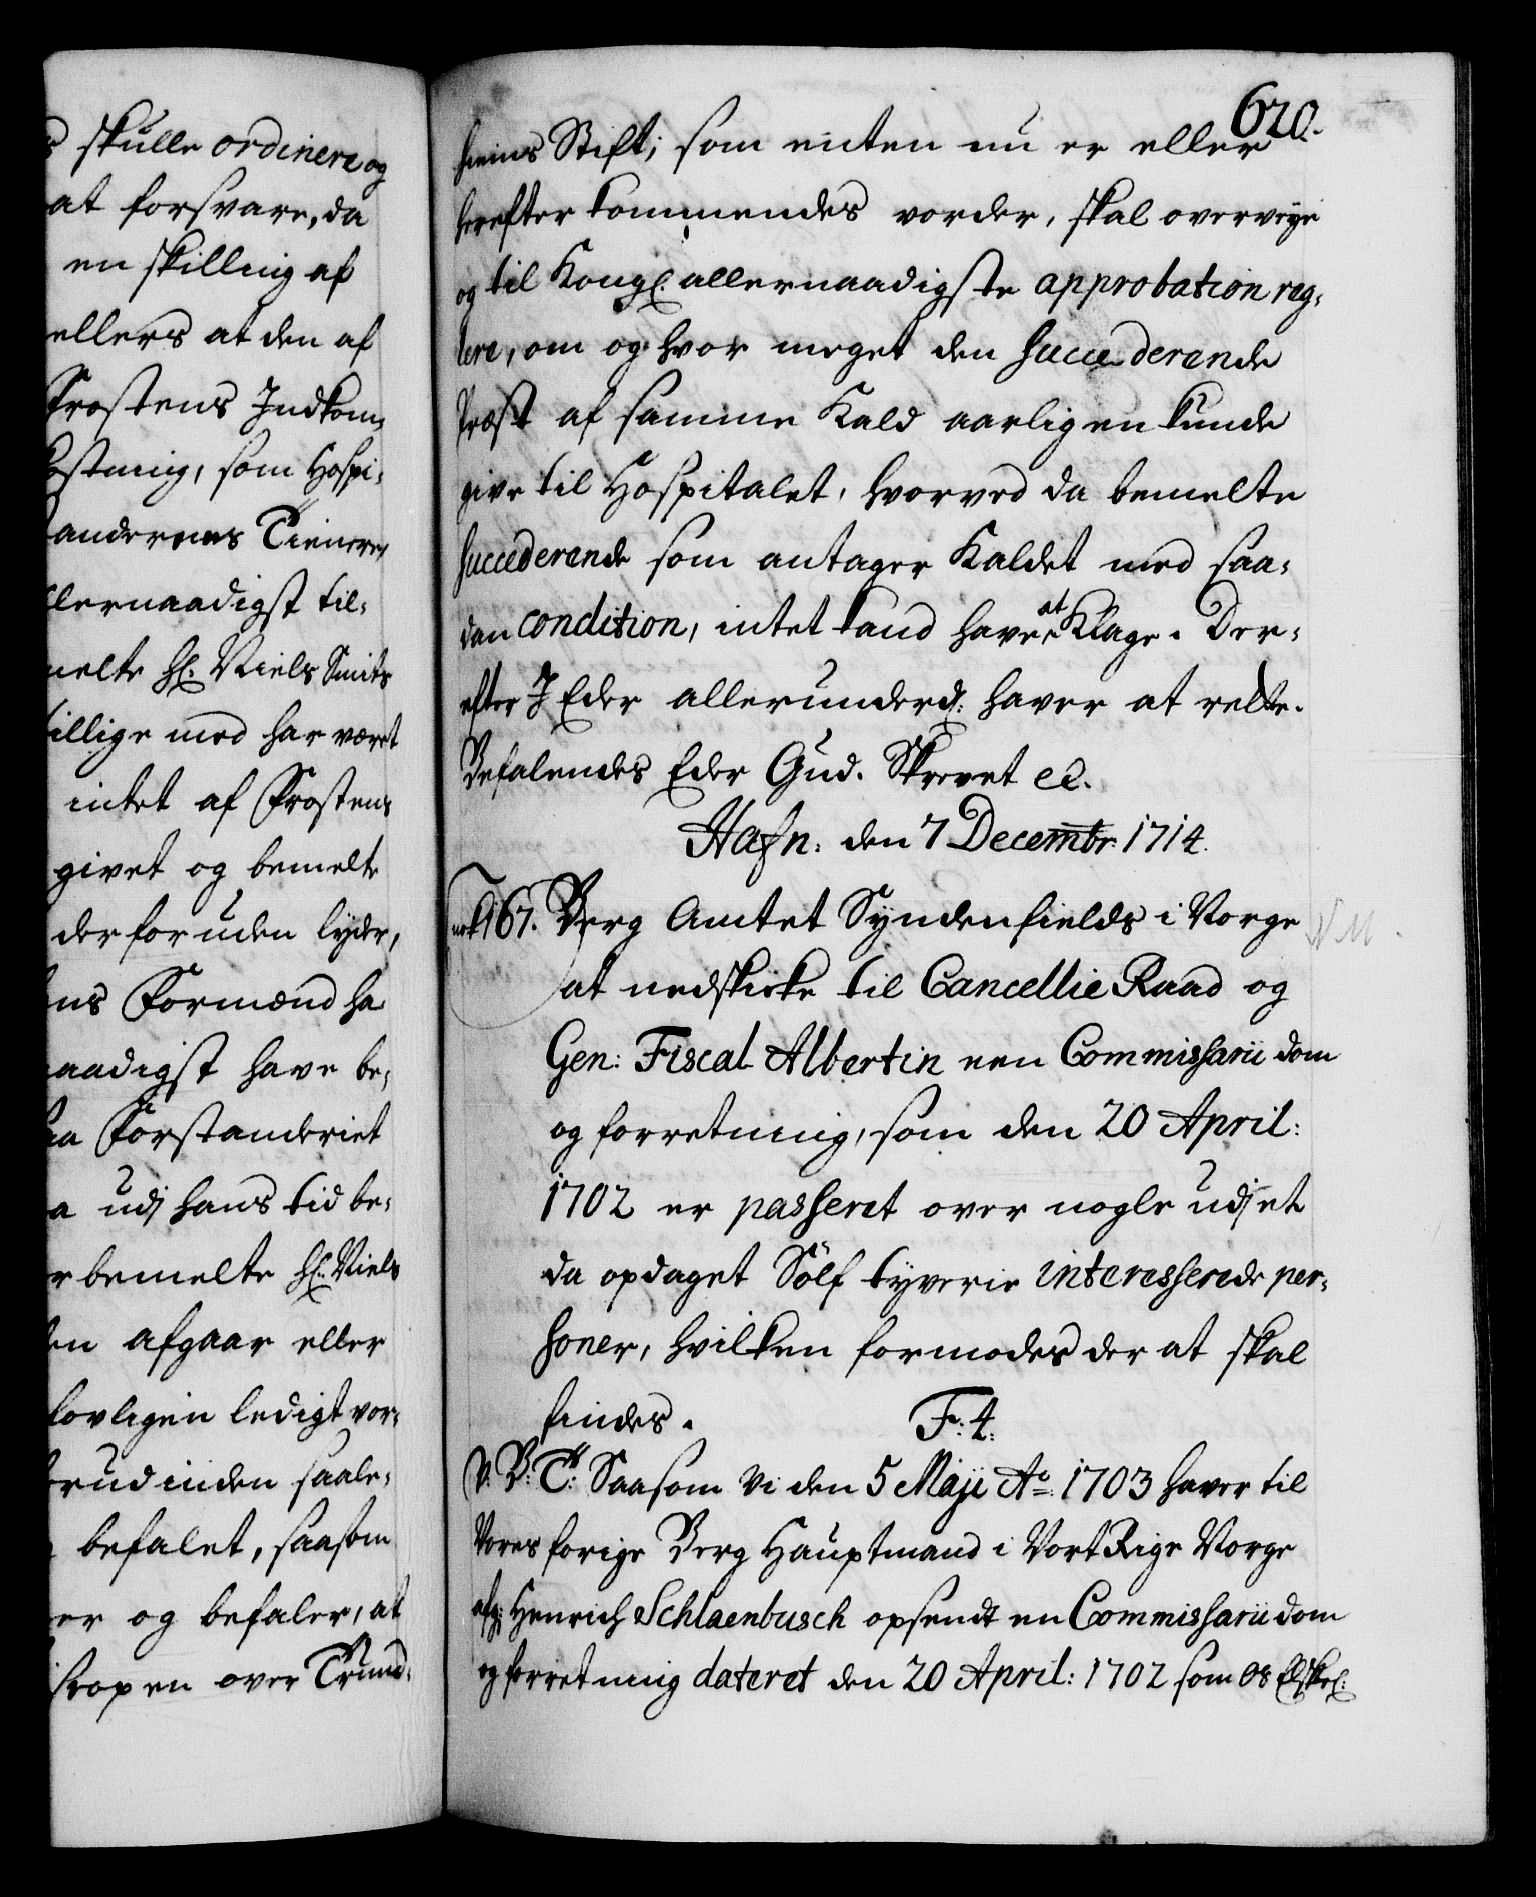 s skulle ordinere og
at forsvare, da
en skilling af
ellers at den af
Trostens Indkom-
kostning, som Hospi-
anderens Tienere,
llernaadigst til-
melte Hr. Niels Smits
tillige med har været
intet af Trostens
givet og bemelte
derforuden lyder,
ns Formænd ha
naadigst have be-
aa Forstanderiet
a udj hans tid be-
r bemelte Hr. Niels
en afgaar eller
lovligen ledigt vor-
brud inden saale-
befalet, saasom
er og befaler, at
iskopen over Trund-
620.
hiems Stift; som enten nu er eller
herefter kommendes vorder, skal overveye
og til Kongl. allernaadigste approbation reg-
lere, om og hvor meget den Succederende
Præst af samme Kald aarligen kunde
give til Hospitalet, hvorved da bemelte
Succederende som antager Kaldet med saa-
dan condition, intet kand have at Klage. Der-
efter I Eder allerunderd: haver at rette.
Befalendes Eder Gud. Skrevet ec.
Hafn: den 7 Decembr. 1714.
167. Berg Amtet Syndenfields i Norge
N.M.
at nedskicke til Cancellie Raad og
Gen: Fiscal Albertin een Commissarii dom
og forretning, som den 20 April:
1702 er passeret over nogle udj et
da opdaget Sölf tyverie interesserede per-
soner, hvilken formodes der at skal
findes. F: 4:
V. B: T: Saasom Vi den 5 Maji Ao. 1703 haver til
Vores forige Berg Hauptmand i Vort Rige Norge
afg: Henrich Schlaenbusch opsendt en Commissarii dom
og forretning dateret den 20 April: 1702 som os Elskel: